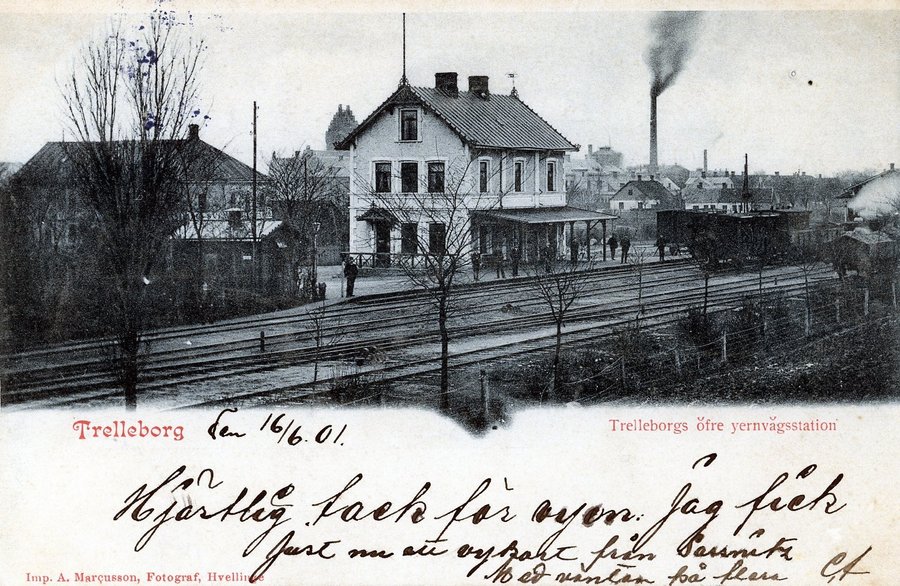 Trelleborg
Den 16/6.01.
Trelleborgs ŏfre yernvăgsstation
Hjärtlig tack för vyen. Jag fick
just nu ett vykort från Sassnitz
Med väntan på flera
Imp. A. Marçusson, Fotograf, Hvellinge